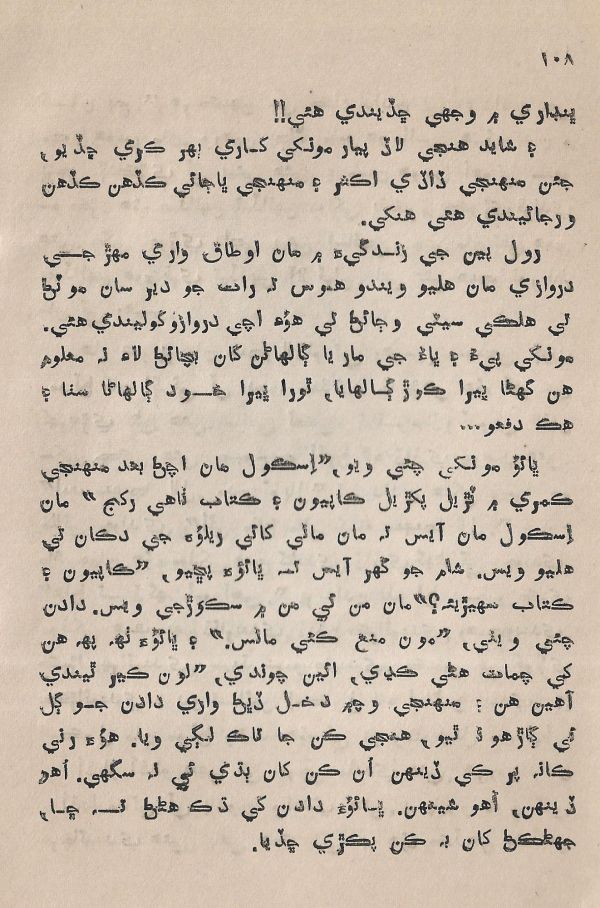 ١٠٨
ڀنڊاري ۾ وجهي ڇڏيندي هئي!!
۽ شايد هنجي لاڏ پيار مونکي کاري ٻهر ڪري ڇڏيو،
جئن منهنجي ڏاڏي اڪثر ۽ منهنجي ڀاڄائي ڪڏهن ڪڏهن
ورجائيندي هئي هنکي.
رول پين جي زندگيءَ ۾ مان اوطاق واري مهڙ جي
دروازي مان هليو ويندو هوس تہ رات جو دير سان موٽڻ
تي هلڪي سيٽي وڄائڻ تي هوءَ اچي دروازو کوليندي هئي.
مونکي پيءُ ۽ ڀاءُ جي مار يا ڳالهائڻ کان بچائڻ لاءِ نہ معلوم
هن گهڻا ڀيرا ڪوڙ ڳالهايا، ٿورا ڀيرا خود ڳالهائا سئا ۽
هڪ دفعو...
ڀائو مونکي چئي ويو، ”اِسڪول مان اچڻ بعد منهنجي
ڪمري ۾ ٽڙيل پکڙيل ڪاپيون ۽ ڪتاب ٺاهي رکج“ مان
اِسڪول مان آيس تہ مان ماني کائي ريلوءِ جي دڪان تي
هليو ويس. شام جو گهر آيس تہ ڀائوءَ پڇيو، ”ڪاپيون ۽
ڪتاب سهيڙيئہ؟“ مان من ئي من ۾ سڪوڙجي ويس. دادن
چئي ويٺي، ”مون منع ڪئي مانس.“ ۽ ڀائوءَ ٺهہ پهہ هن
کي چمات هڻي ڪڍي، ائين چوندي، ”تون ڪير ٿيندي
آهين هن ۽ منهنجي وچ ۾ دخل ڏيڻ واري دادن جو ڳل
ئي ڳاڙهو نہ ٿيو، هنجي ڪن جا ٽاڪ لڳي ويا. هوءَ رني
ڪانہ پر ڪي ڏينهن اُن ڪن کان ٻڌي ئي نہ سگهي. اُهو
ڏينهن، اُهو شينهن. ڀائوءَ دادن کي ڌڪ هڻڻ تہ ڇا،
جهڻڪڻ کان بہ ڪن پڪڙي ڇڏيا.